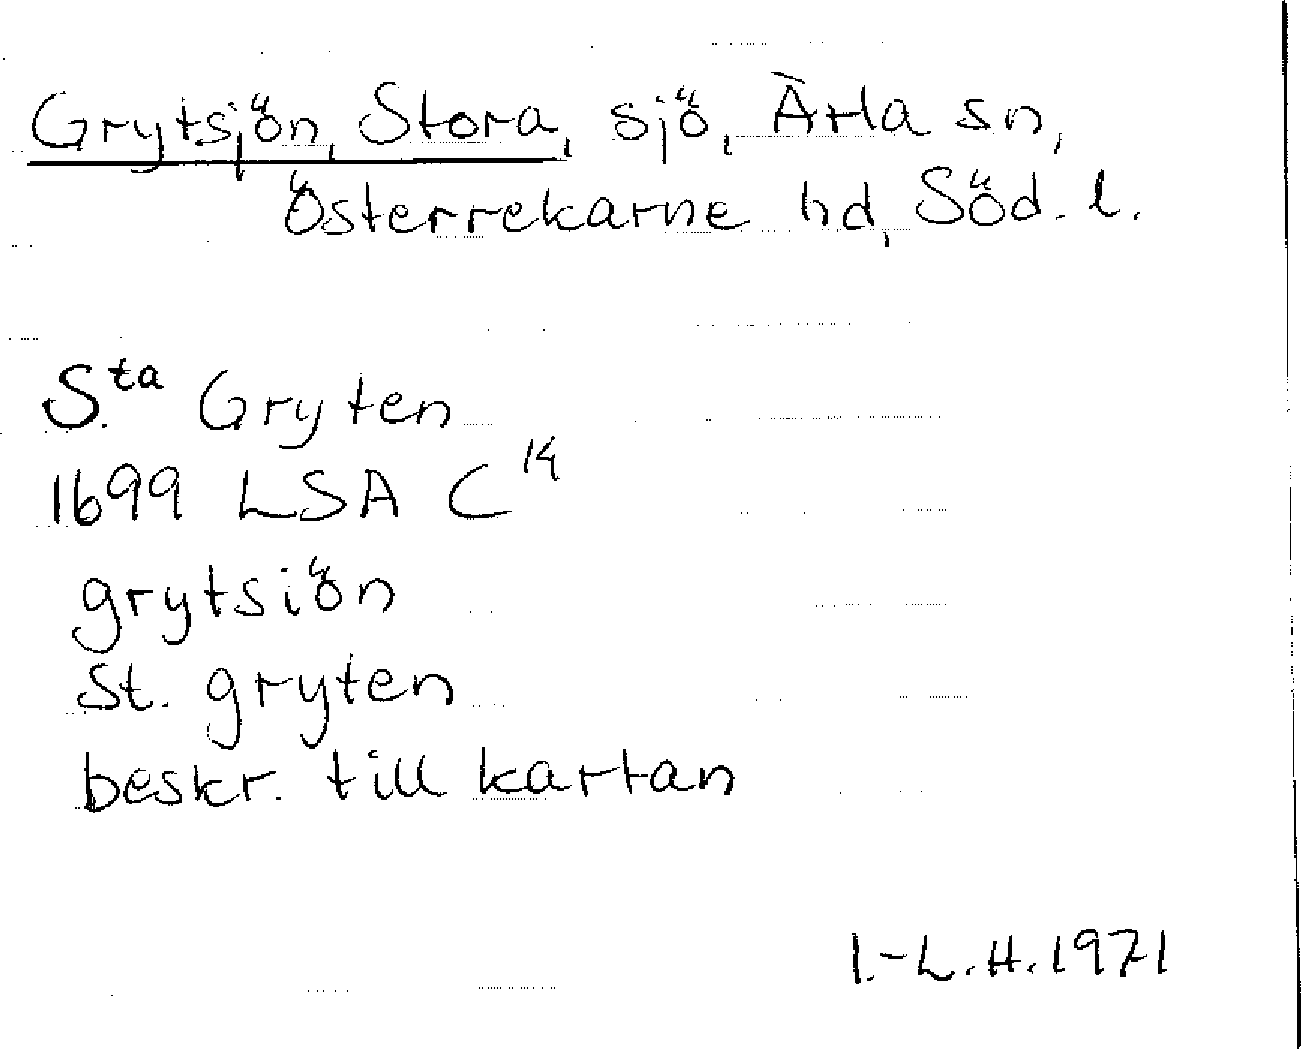 Grytsjön, Stora, sjö, Ärla sn,
Österrekarne hd, Söd. l.
S.ta Gryten
1699 LSA C14
grytsiön
St. gryten
beskr. till kartan
I.-L.H. 1971